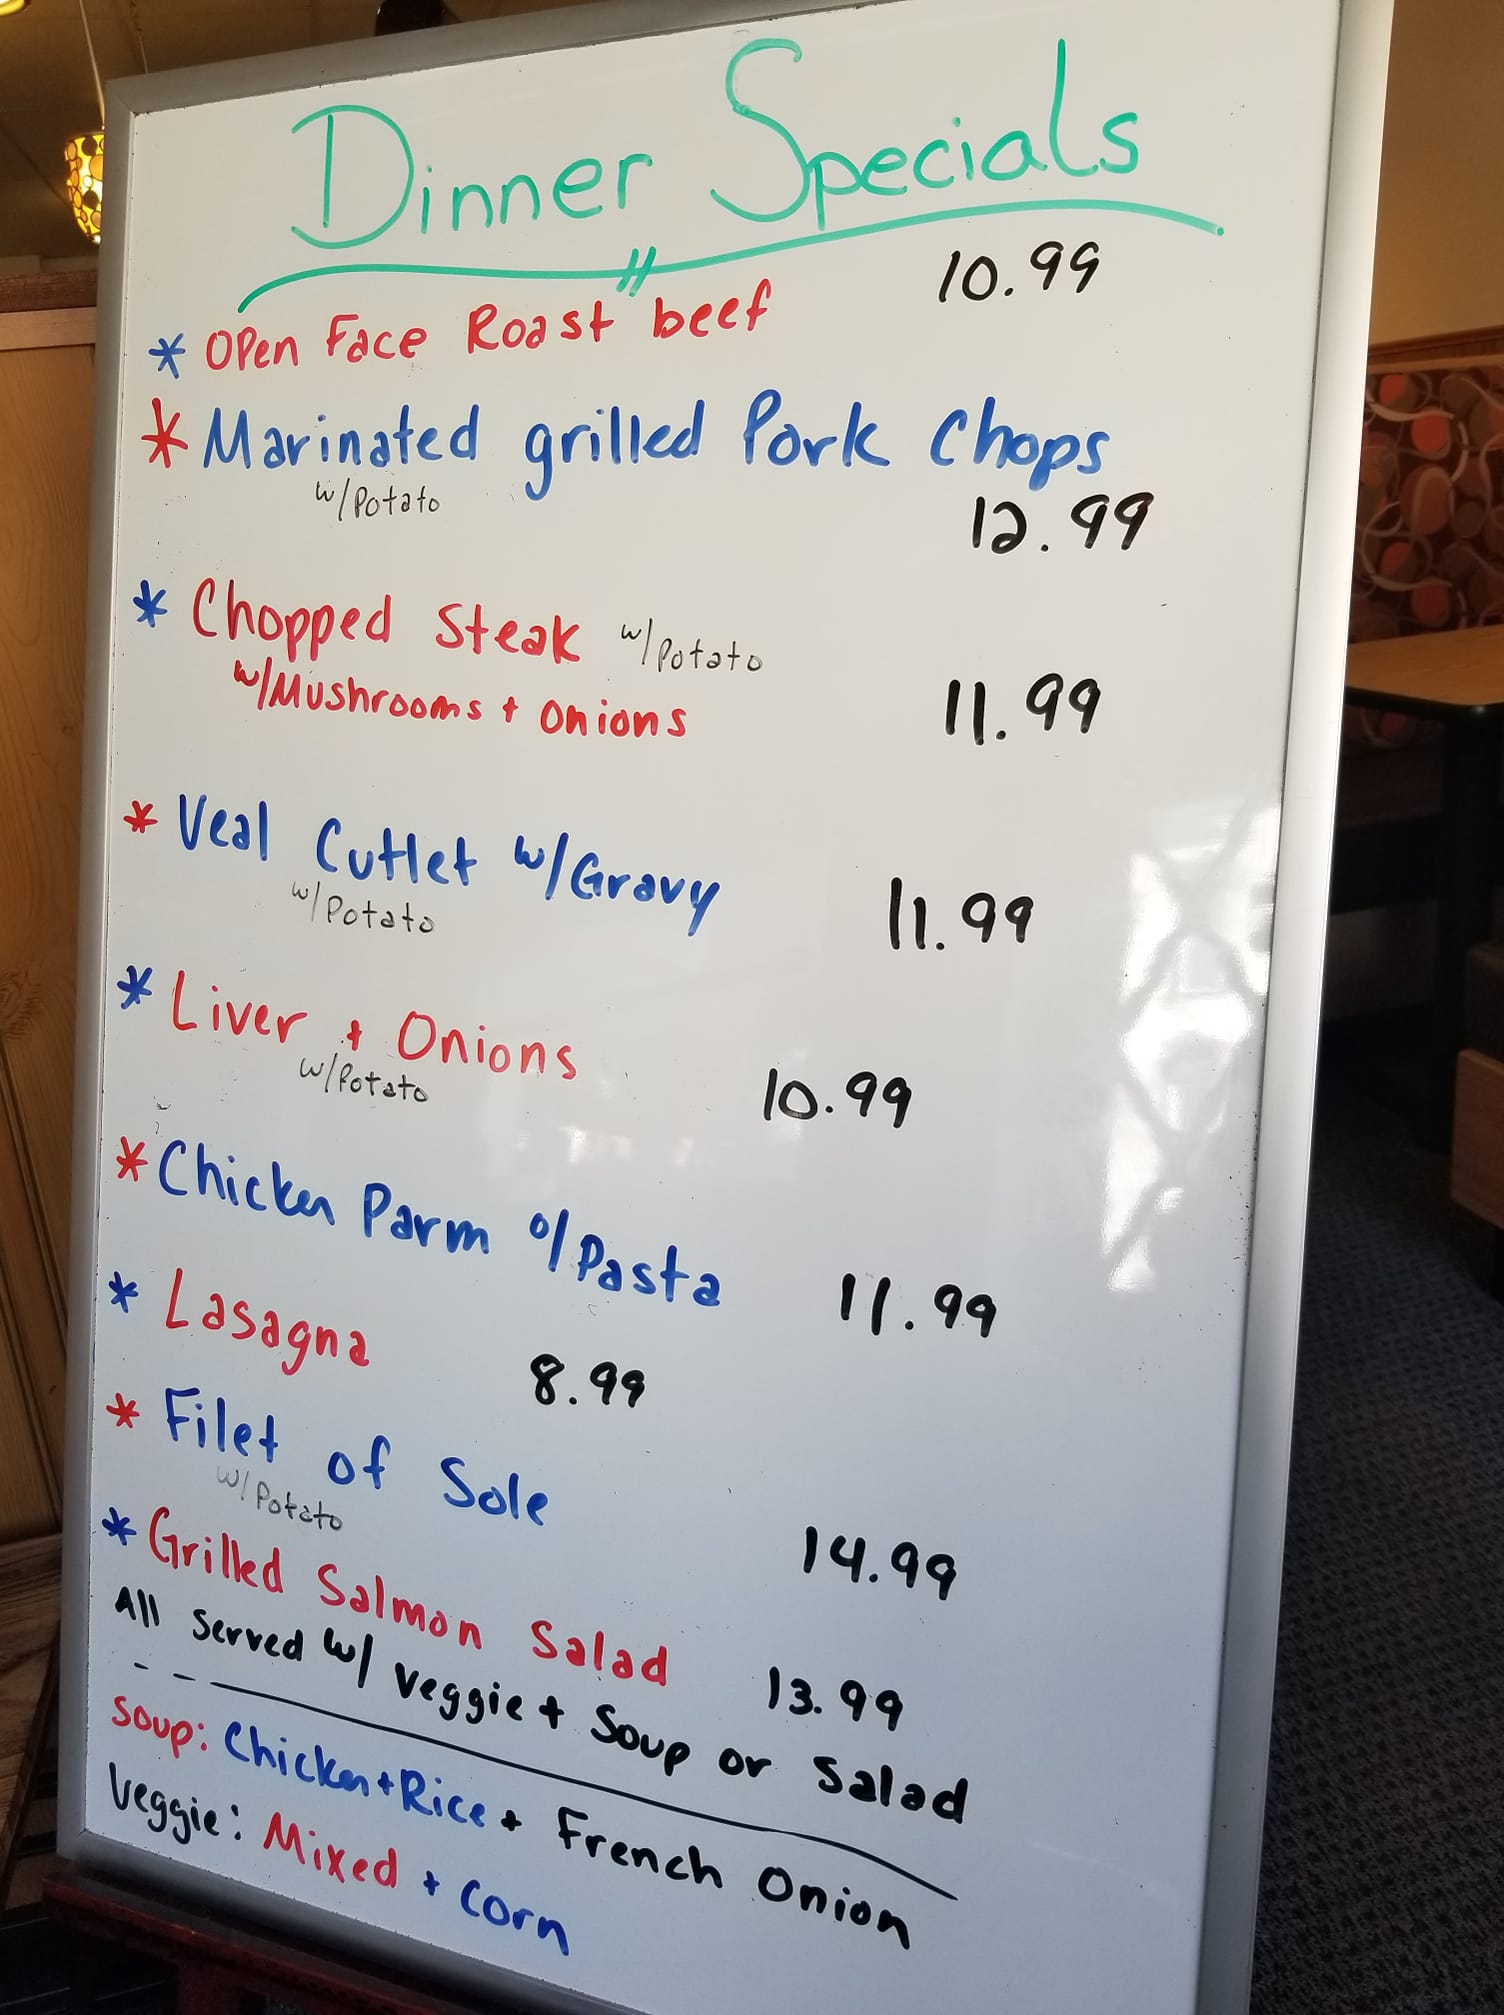 Dinner Specials
* Open Face Roast beef 10.99
* Marinated grilled Pork Chops
w/Potato 12.99
* Chopped Steak w/Potato
w/Mushrooms + Onions 11.99
* Veal Cutlet w/Gravy
w/Potato 11.99
* Liver + Onions
w/Potato 10.99
* Chicken Parm o/Pasta 11.99
* Lasagna 8.99
* Filet of Sole
w/Potato 14.99
* Grilled Salmon Salad 13.99
All Served w/ Veggie + Soup or Salad
Soup: Chicken + Rice + French Onion
Veggie: Mixed + Corn